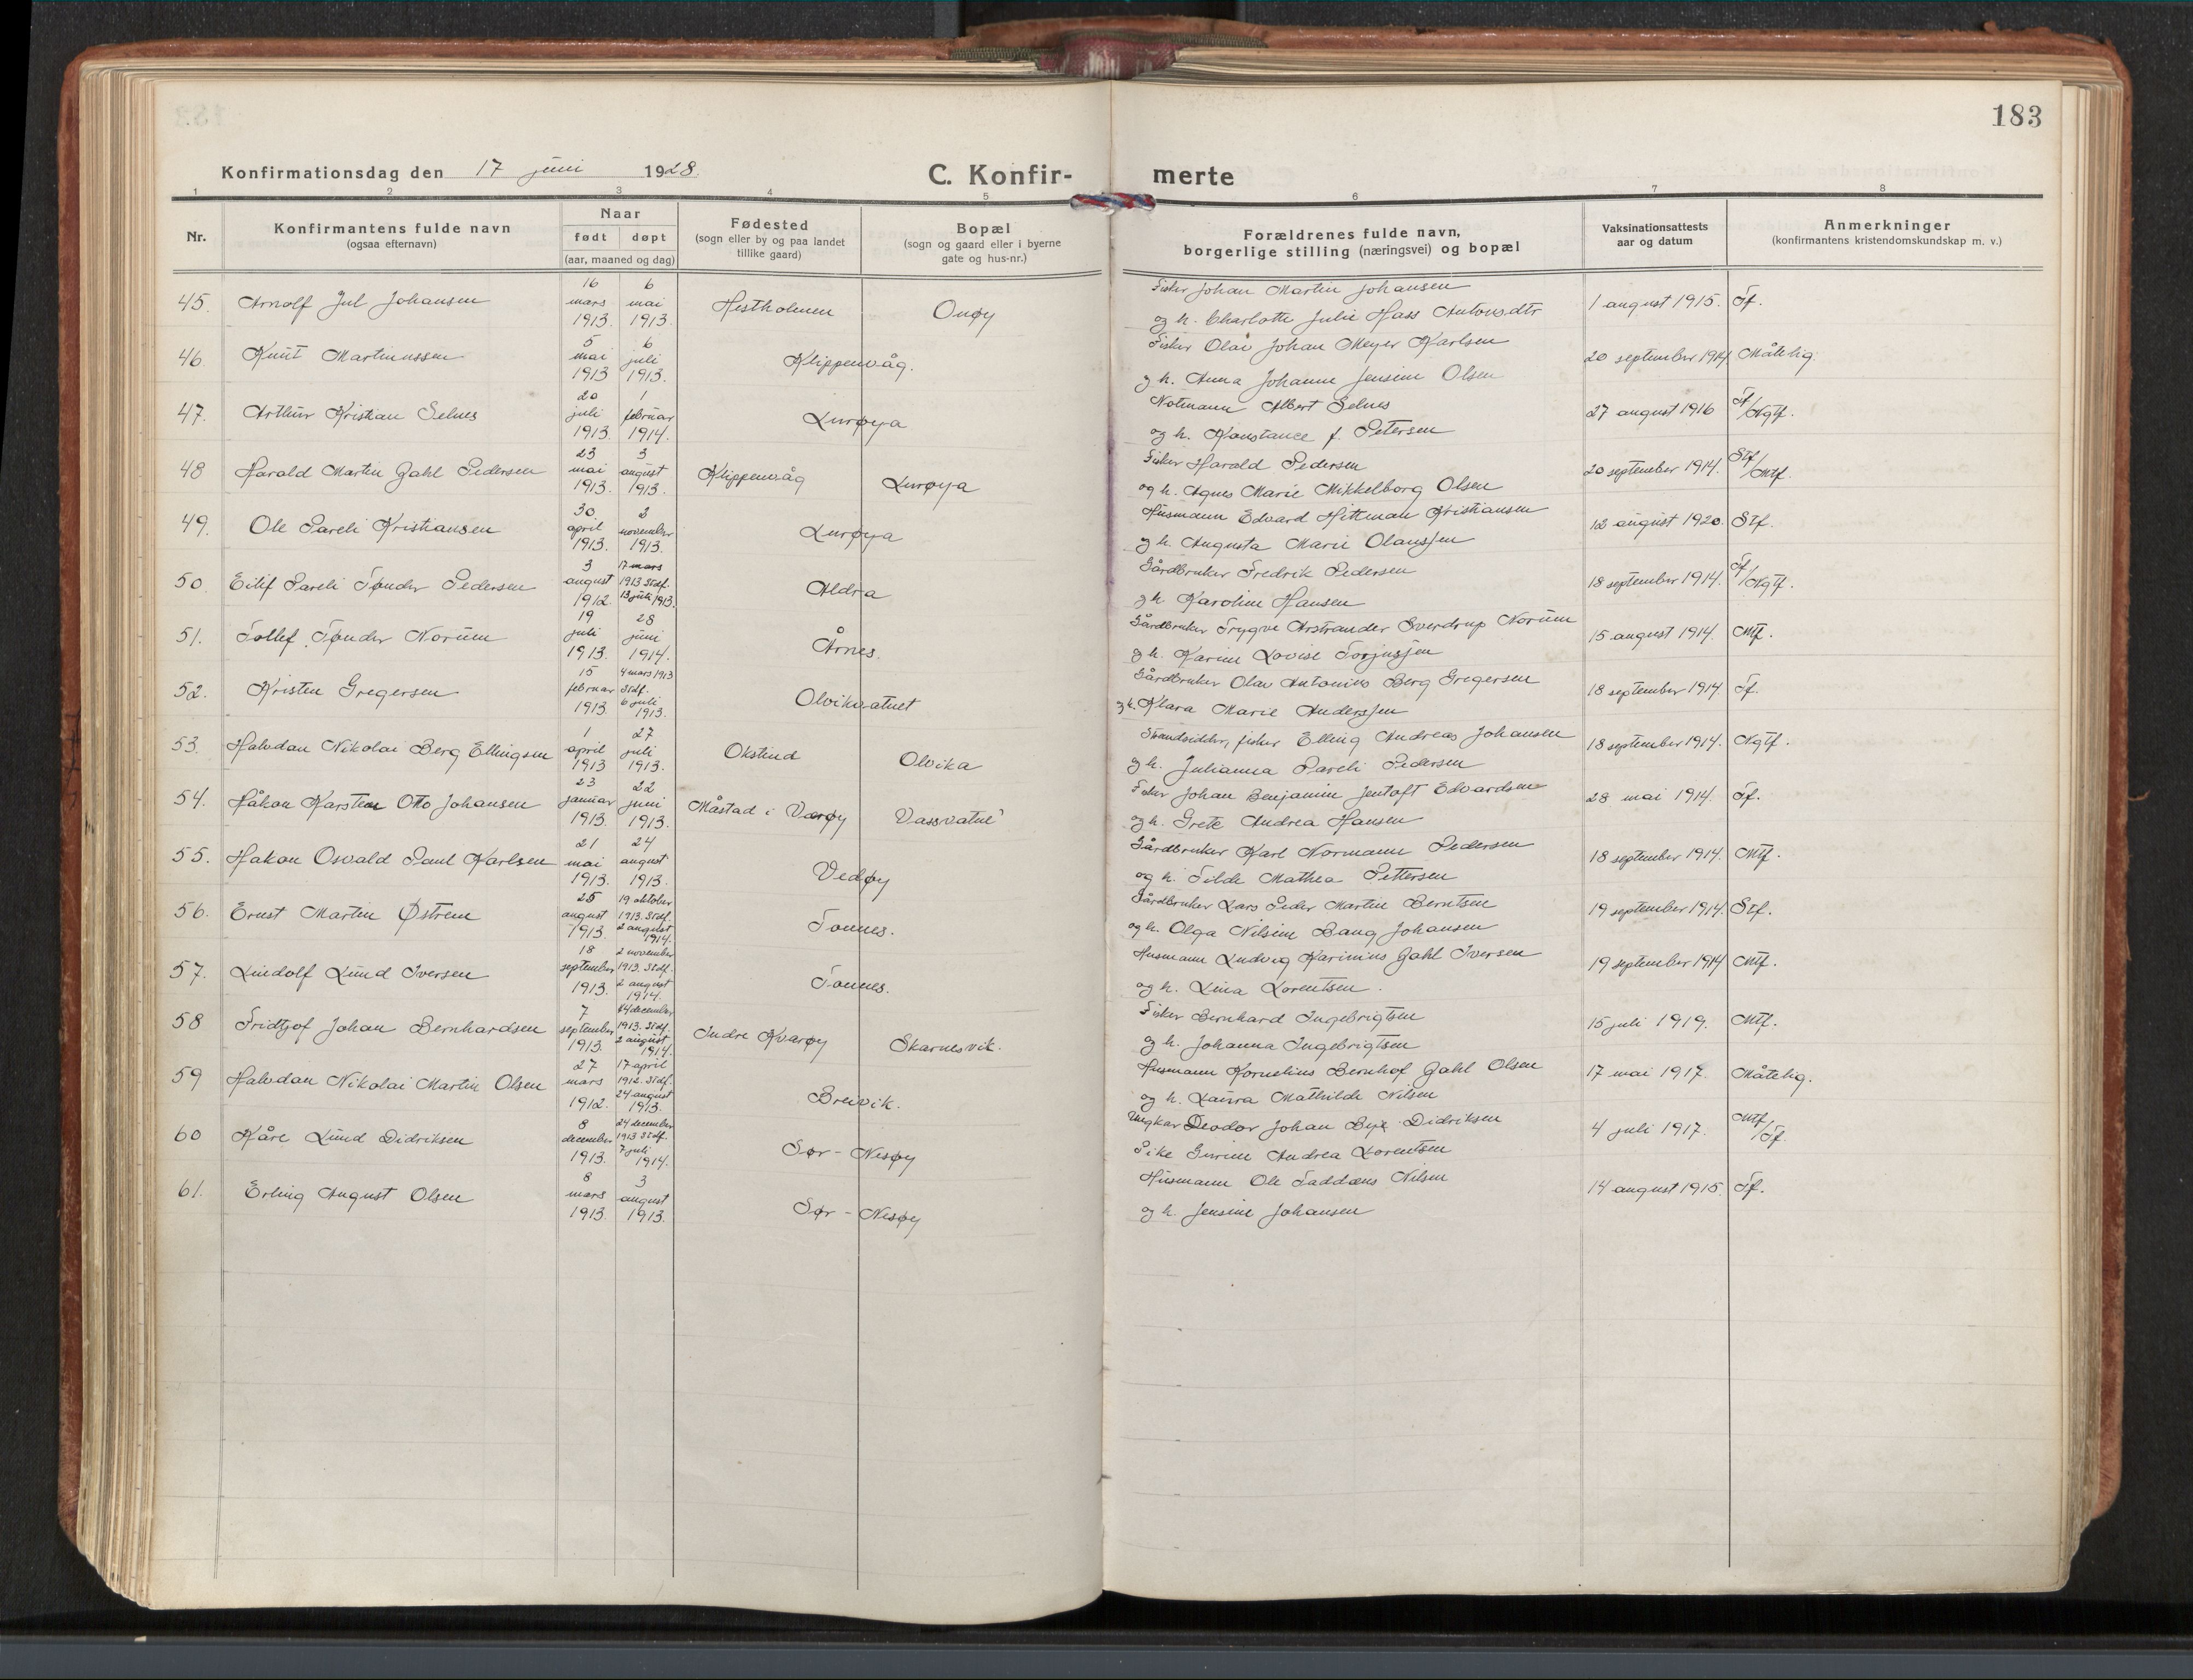 183
Konfirmationsdag den 17 juni 1928.
C. Konfir-merte
1 2 3 4 5 6 7 8
Nr.
Konfirmantens fulde navn
(ogsaa efternavn)
Naar
født døpt
(aar, maaned og dag)
Fødested
(sogn eller by og paa landet
tillike gaard)
Bopæl
(sogn og gaard eller i byerne
gate og hus-nr.)
Forældrenes fulde navn,
borgerlige stilling (næringsvei) og bopæl
Vaksinationsattests
aar og datum
Anmerkninger
(konfirmantens kristendomskundskap m. v.)
45. Arnolf Jul Johansen 16 mars 1913. 6 mai 1913. Hestholmen Onøy Fisker Johan Martin Johansen
og h. Charlotte Julie Hass Antonsdtr 1 august 1915. Tf.
46. Knut Martinussen 5 mai 1913 6 juli 1913. Klippenvåg. Fisker Olai Johan Meyer Karlsen
og h. Anna Johanne Jensine Olsen 20 september 1914. Måtelig.
47. Arthur Kristian Selnes 20 juli 1913. 1 februar 1914. Lurøya Notmann Albert Selnes
og h. Konstance f. Petersen 27 august 1916 Tf/Ngtf.
48 Harald Martin Gahl Pedersen 23 mai 1913. 3 august 1913. Klippenvåg Lurøya Fisker Harald Pedersen
og h. Agnes Marie Mikkelborg Olsen 20 september 1914. Stf/Mtf.
49. Ole Pareli Kristiansen 30. april 1913. 2 november 1913. Lurøya Husmann Edvard Hittman Kristiansen
og h. Augusta Marie Olaussen 12 august 1920. Stf.
50. Eilif Pareli Tønder Pedersen 3 august 1912. 17 mars 1913 Stdf. 13 juli 1913. Aldra Gårdbruker Fredrik Pedersen
og h. Karoline Hansen 18 september 1914. Tf/Ngtf.
51. Tollef Tønder Norum 19 juli 1913. 28 juni 1914. Årnes. Gårdbruker Trygve Arstrander Sverdrup Norum
og h. Karine Lovise Torjussen 15 august 1914. Mtf.
52. Kristen Gregersen 15 februar 1913. 4 mars 1913 Stdf. 6 juli 1913. Olvikvatnet Gårdbruker Olav Antonius Berg Gregersen
og h. Klara Marie Anderssen 18 september 1914. Tf.
53. Halvdan Nikolai Berg Ellingsen 1 april 1913 27 juli 1913. Okstind Olvika Strandsidder, fisker Elling Andreas Johansen
og h. Julianna Pareli Pedersen 18 september 1914. Ngtf.
54. Håkon Karsten Otto Johansen 23 januar 1913. 22 juni 1913. Måstad i Værøy Vassvatnet Fisker Johan Benjamin Jentoft Edvardsen
og h. Grete Andrea Hansen 28 mai 1914. Tf.
55. Hakon Osvald Paul Karlsen 21 mai 1913. 24 august 1913. Vedøy Gårdbruker Karl Normann Pedersen
og h. Tilde Mathea Pettersen 18 september 1914. Mtf.
56. Ernst Martin Østrem 25 august 1913. 19 oktober 1913. Stdf. 2 august 1914. Tonnes. Gårdbruker Lars Peder Martin Berntsen
og h. Olga Nilsine Bang Johansen 19 september 1914. Stf.
57. Lindolf Lund Iversen 18 september 1913. 2 november 1913. Stdf. 2 august 1914. Tonnes. Husmann Ludvig Karinius Gahl Iversen
og h. Lina Lorentsen. 19 september 1914 Mtf.
58 Fridtjof Johan Bernhardsen 7 september 1913. 14 december 1913. Stdf. 2 august 1914. Indre Kvarøy Skarnesvik. Fisker Bernhard Ingebrigtsen
og h. Johanna Ingebrigtsen 15 juli 1919. Mtf.
59 Halvdan Nikolai Martin Olsen 27 mars 1912. 17 april 1912. Stdf. 24 august 1913. Breivik. Husmann Kornelius Bernhof Gahl Olsen
og h. Laura Mathilde Nilsen 17 mai 1917. Måtelig.
60 Kåre Lund Didriksen 8 december 1913. 24 december 1913 Stdf. 7 juli 1914. Sør-Nesøy Ungkar Deodor Johan Bye Didriksen
Pike Gurine Andrea Lorentsen 4 juli 1917. Mtf/Tf.
61. Erling August Olsen 8 mars 1913. 3 august 1913. Sør-Nesøy Husmann Ole Taddæus Nilsen
og h. Jensine Johansen 14 august 1915. Tf.